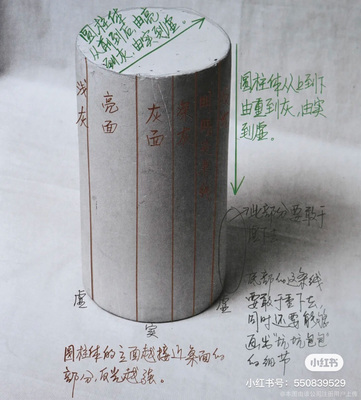 圆柱体
从前到后，由亮
到灰，由实到虚。
浅灰
亮面
灰面
圆柱体从上到下
由重到灰，由实
到虚。
要敢于
虚
实
虚
底部的这条线
要敢于重下去，
同时还要能够
画出“坑坑包包”
的细节
圆柱体的立面越接近桌面的
部分，反光越强。
小红书
小红书号：550839529